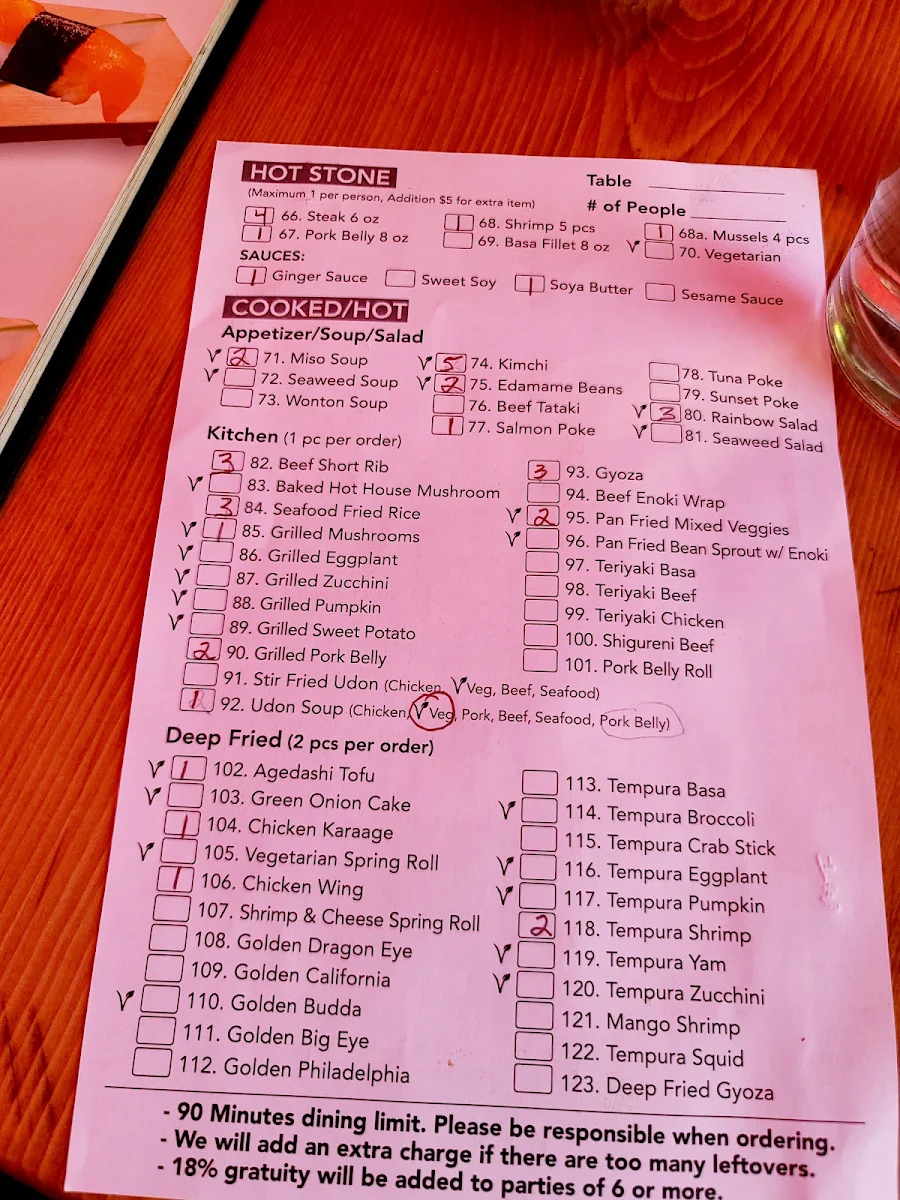 HOT STONE
Table
(Maximum 1 per person, Addition $5 for extra item)
# of People
4 66. Steak 6 oz 1 68. Shrimp 5 pcs 1 68a. Mussels 4 pcs
1 67. Pork Belly 8 oz 69. Basa Fillet 8 oz V 70. Vegetarian
SAUCES:
1 Ginger Sauce Sweet Soy 1 Soya Butter Sesame Sauce
COOKED/HOT
Appetizer/Soup/Salad
V 2 71. Miso Soup V 5 74. Kimchi 78. Tuna Poke
V 72. Seaweed Soup V 2 75. Edamame Beans 79. Sunset Poke
73. Wonton Soup 76. Beef Tataki V 3 80. Rainbow Salad
1 77. Salmon Poke V 81. Seaweed Salad
Kitchen (1 pc per order)
3 82. Beef Short Rib 3 93. Gyoza
V 83. Baked Hot House Mushroom 94. Beef Enoki Wrap
3 84. Seafood Fried Rice V 2 95. Pan Fried Mixed Veggies
V 1 85. Grilled Mushrooms V 96. Pan Fried Bean Sprout w/ Enoki
V 86. Grilled Eggplant 97. Teriyaki Basa
V 87. Grilled Zucchini 98. Teriyaki Beef
V 88. Grilled Pumpkin 99. Teriyaki Chicken
V 89. Grilled Sweet Potato 100. Shigureni Beef
2 90. Grilled Pork Belly 101. Pork Belly Roll
91. Stir Fried Udon (Chicken, V Veg, Beef, Seafood)
1 92. Udon Soup (Chicken, V Veg, Pork, Beef, Seafood, Pork Belly)
Deep Fried (2 pcs per order)
V 1 102. Agedashi Tofu 113. Tempura Basa
V 103. Green Onion Cake V 114. Tempura Broccoli
1 104. Chicken Karaage 115. Tempura Crab Stick
V 105. Vegetarian Spring Roll V 116. Tempura Eggplant
1 106. Chicken Wing V 117. Tempura Pumpkin
107. Shrimp & Cheese Spring Roll 2 118. Tempura Shrimp
108. Golden Dragon Eye V 119. Tempura Yam
109. Golden California V 120. Tempura Zucchini
V 110. Golden Budda 121. Mango Shrimp
111. Golden Big Eye 122. Tempura Squid
112. Golden Philadelphia 123. Deep Fried Gyoza
- 90 Minutes dining limit. Please be responsible when ordering.
- We will add an extra charge if there are too many leftovers.
- 18% gratuity will be added to parties of 6 or more.